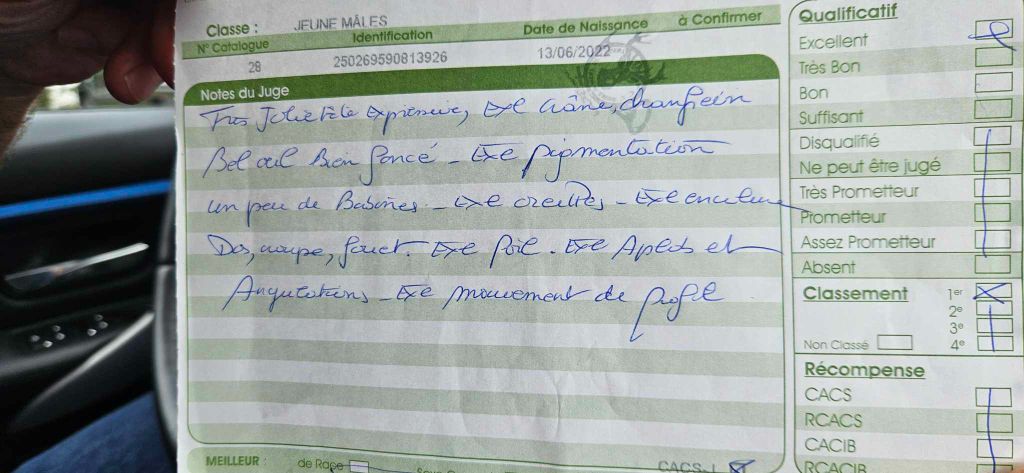 Classe : JEUNE MÂLES
N° Catalogue Identification Date de Naissance à Confirmer
28 250269590813926 13/06/2022
Notes du Juge
Très Jolie tête expressive, Exe crâne, chanfrein
Bel œil Bien foncé - Exe pigmentation
un peu de Babines - Exe oreilles - Exe encolure
Dos, croupe, fouet. Exe poil. Exe Aplobs et
Angulations - Exe mouvement de profil
Qualificatif
Excellent
Très Bon
Bon
Suffisant
Disqualifié
Ne peut être jugé
Très Prometteur
Prometteur
Assez Prometteur
Absent
Classement 1er
2e
3e
Non Classé 4e
Récompense
CACS
RCACS
CACIB
RCACIB
MEILLEUR : de Race CACS J